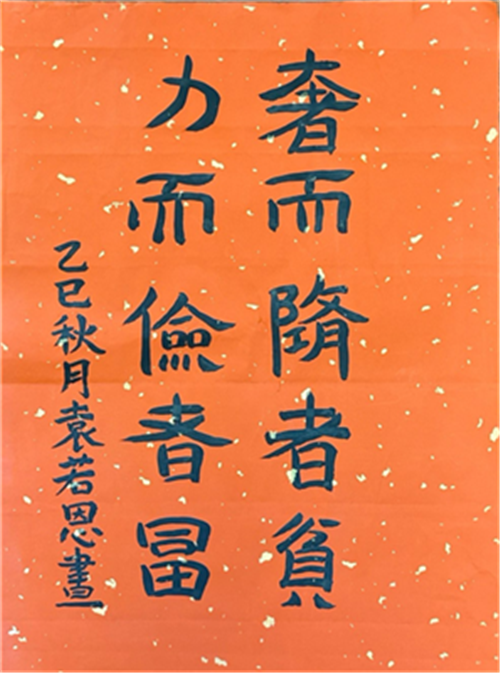 奢而隋者貧
力而儉者冨
乙巳秋月袁若恩書